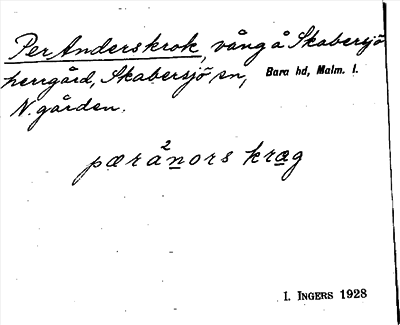 Per Anders krok, vång å Skabersjö
herrgård, Skabersjö sn, Bara hd, Malm. l.
N. gården.
2
pæranors kræg
I. INGERS 1928